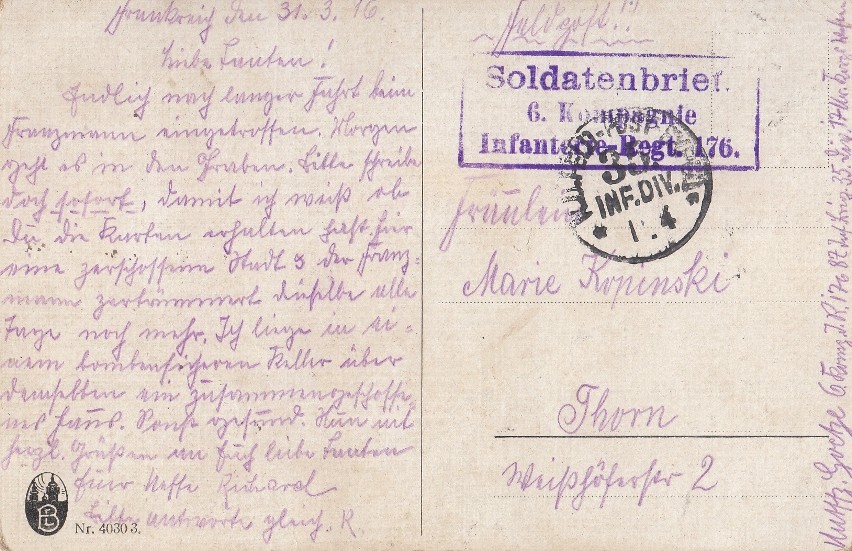 Frankreich den 31.3.16.
Liebe Tanten!
Endlich nach langer Fahrt beim
Franzmann eingetroffen. Morgen
geht es in den Graben. Bitte schreibe
doch sofort, damit ich weiß ob
Du die Karten erhalten hast. Hier
eine zerschossene Stadt & der Franz-
mann zertrümmert dieselbe alle
Tage noch mehr. Ich liege in ei-
nem bombensicheren Keller über
demselben ein zusammengeschosse-
nes Haus. Sonst gesund. Nun mit
herzl. Grüßen an Euch liebe Tanten
Euer Neffe Richard
Bitte antworte gleich. R.
Nr. 4030 3.
Feldpost!!
Soldatenbrief.
6. Kompagnie
Infanterie-Regt. 176.
35
INF. DIV.
Fräulein
Marie Kopinski
Thorn
Weißhöferstr 2
Goetze 6 Komp. J.R. 176 87 Inf Brig. 35. Div. 17